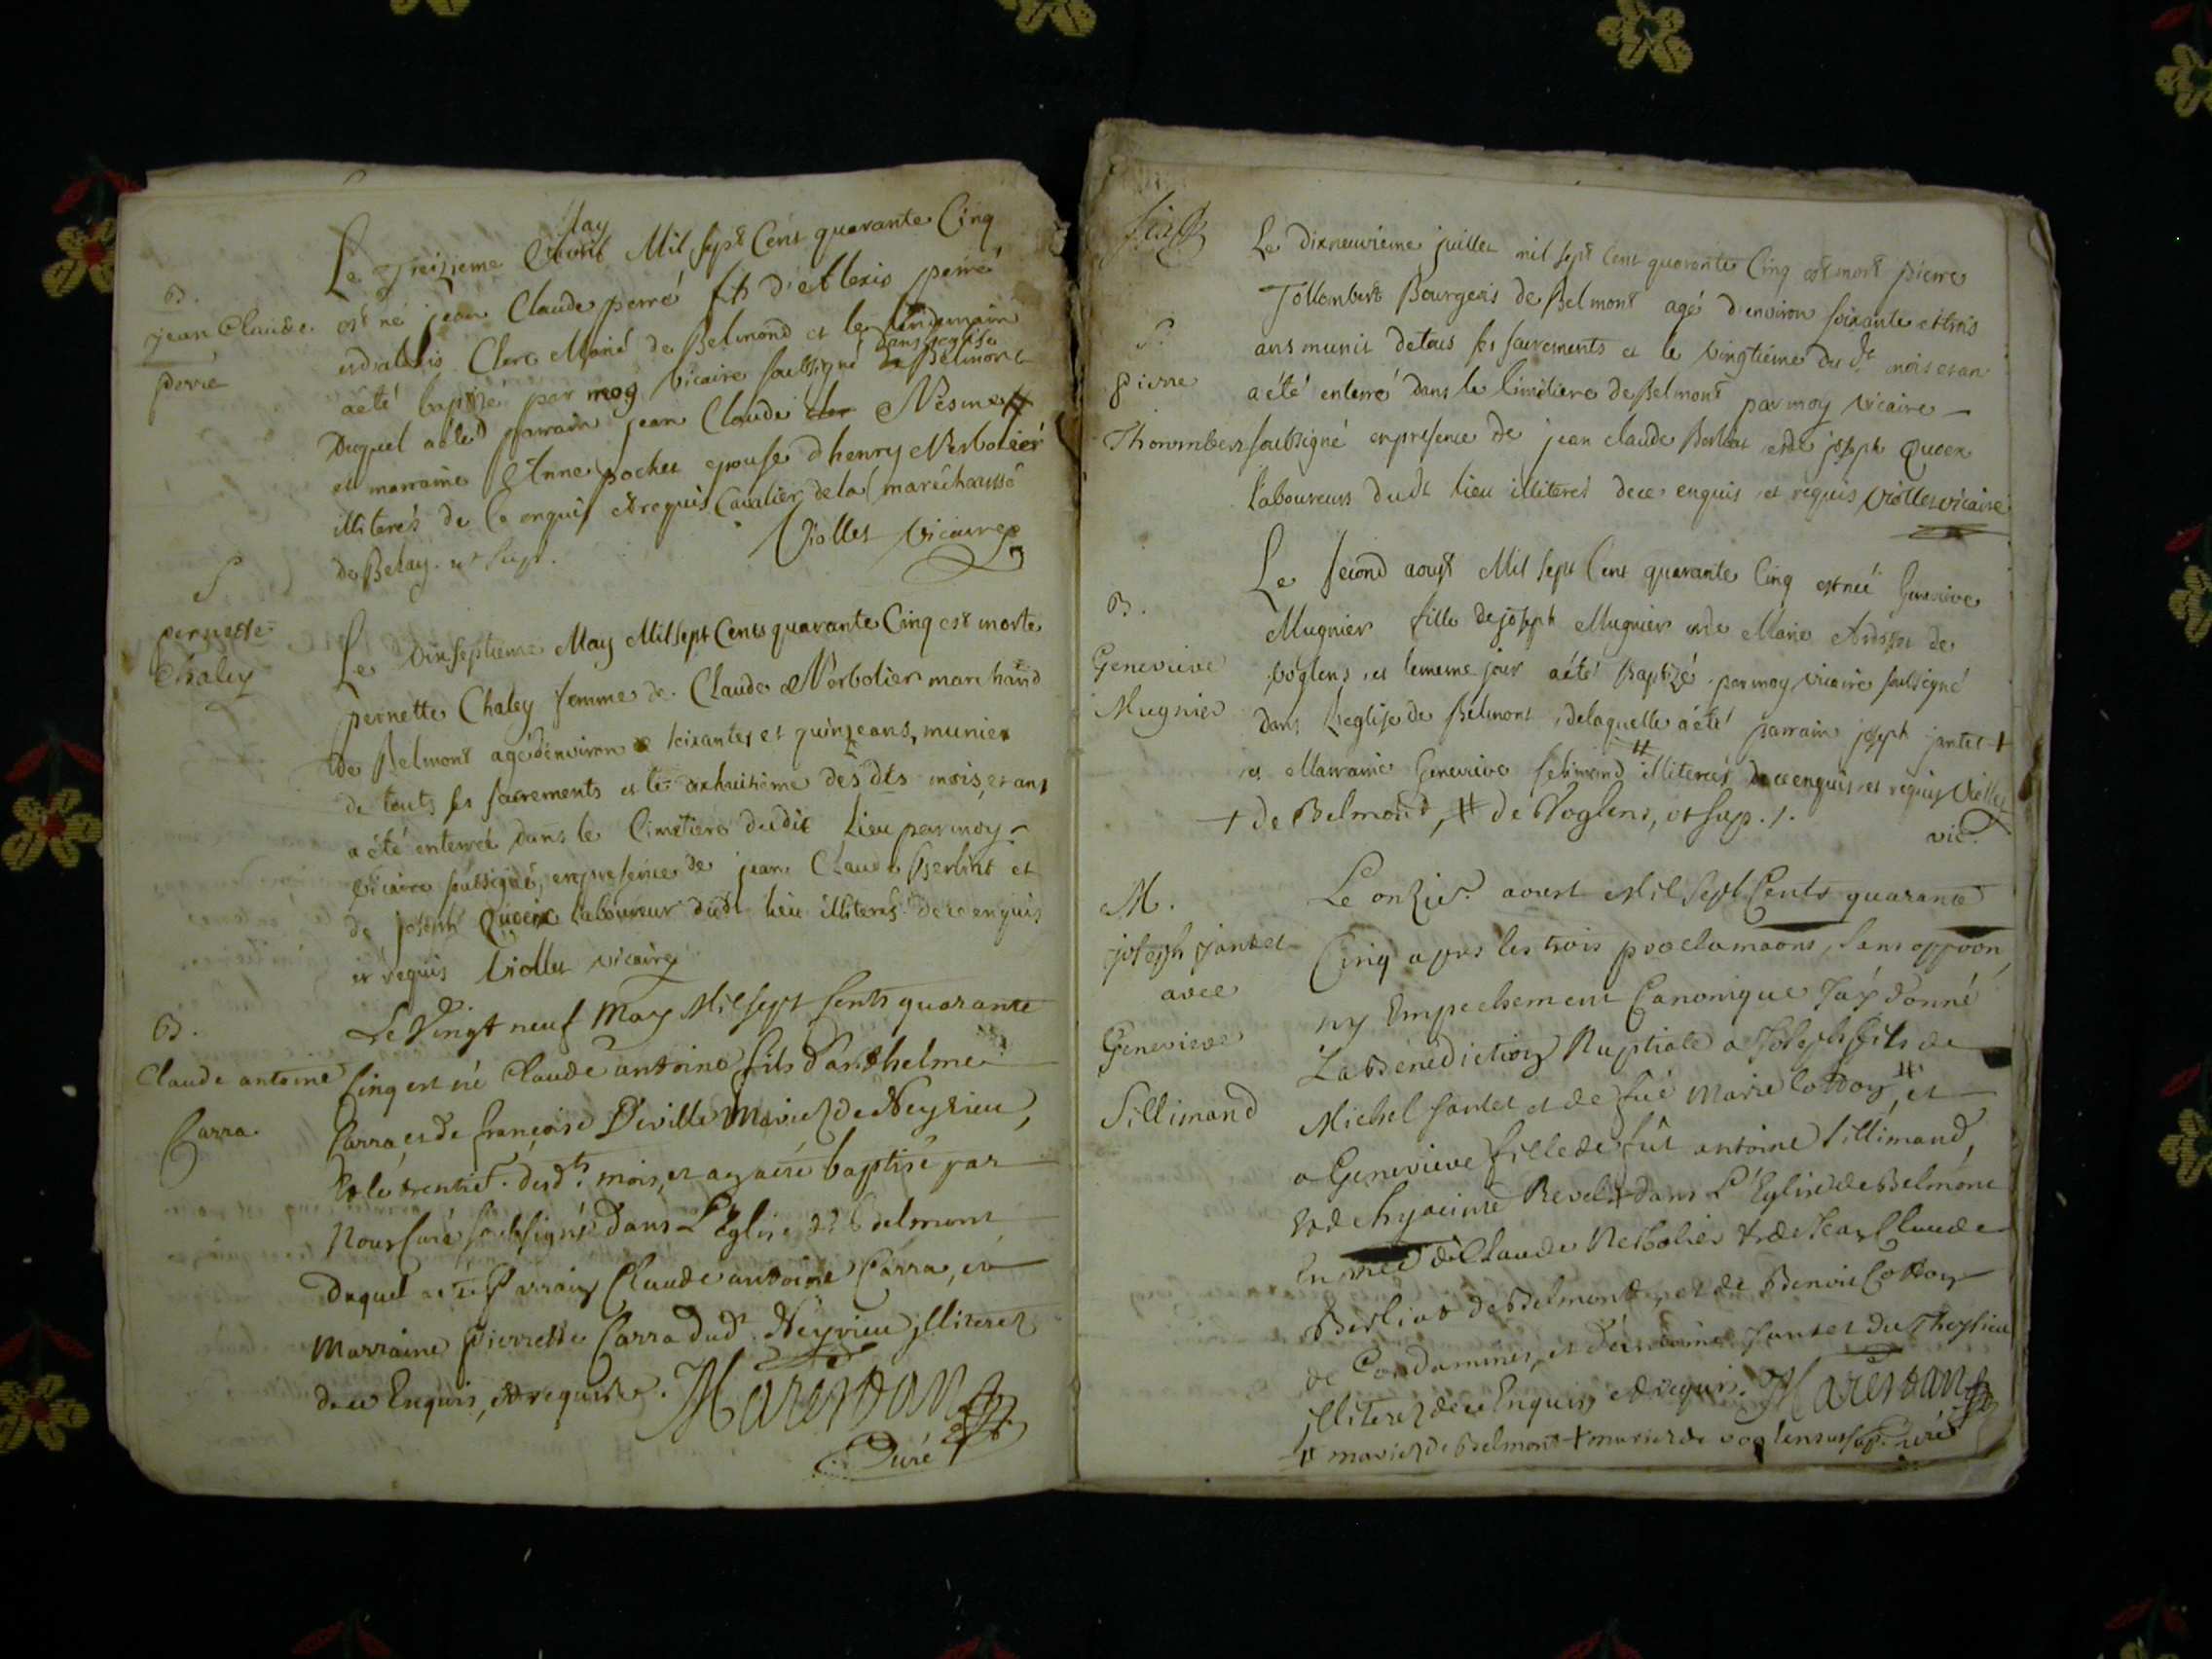 May
Le Treizieme Avril Mil sept Cent quarante Cinq
B.
jean Claude
perré
est né jean Claude perré fils d'Alexis perré
Clerc Marié de Belmond et le lendemain
dans l'eglise
a été baptisé par moy vicaire soussigné de Belmont
Duquel a été parrain jean Claude Nesme #
et marraine Anne pochet epouse d'henry Nerbolier
illiterés de Ce enquis et requis Cavalier de la maréchaussé
de Belay. ut sup. Viollet vicaire
S
pernette
Chaley
Le Dix septieme May Mil sept Cents quarante Cinq est morte
pernette Chaley femme de Claude Nerbolier marchand
de Belmont agé d'environ soixantes et quinze ans, munier
de touts ses sacrements et le dixhuitième des dts mois, et ans
a été enterré dans le Cimetiere dudit Lieu par moy
vicaire soussigné, en presence de jean Claude Berlint et
de joseph Quoex Laboureur dudt lieu illiterés de ce enquis
et requis Viollet vicaire
B.
Claude antoine
Carra
Le Vingt neuf May Mil sept Cents quarante
Cinq est né Claude antoine fils d'anthelme
Carra, et de françoise Déville Mariez de Neyrieu,
Et le trentie. desdts. mois, et an a été baptisé par
Nous Curé soussigné dans L'Eglise de Belmont
duquel a été Parrain Claude antoine Carra, et
Marraine pierrette Carra dudt. Neyrieu jlliterez
de ce Enquis, et requis. Marestan
Curé
Le Dixneuvieme juillet mil sept Cent quarante Cinq est mort pierre
Tollombert Bourgeois de Belmont agé d'environ soixante et trois
S.
pierre
Thorombert
ans munit de tous ses sacrements et le vingtième du dt mois et an
a été enterré dans le Cimitiere de Belmont par moy vicaire
soussigné en presence de jean claude Berlint et de joseph Quoex
Laboureurs dudt Lieu illiterés de ce enquis et requis Viollet vicaire
B.
Genevieve
Mugnier
Le second aoust Mil sept Cent quarante Cinq est née Genevieve
Mugnier fille de joseph Mugnier et de Marie de
voglens, et le meme jour a été Baptizé par moy vicaire soussigné
dans l'eglise de Belmont, de laquelle a été parrain joseph jantet +
et Marraine Genevieve selimand # illiterés de ce enquis et requis Viollet
+ de Belmond, # de Voglens, ut sup. /. vic.
M.
joseph jantet
avec
Genevieve
Sillimand
Le onzie. aoust Mil sept Cents quarante
Cinq apres les trois proclamaons, sans oppoon,
ny Empechement Canonique J'ay donné
La Bénédiction Nuptiale a Joseph fils de
Michel jantet et de fue Marie Cottoy #, et
a Genevieve fille de fût antoine Sillimand,
et de hyacinte Revel + dans L'Eglise de Belmont
En pnce de Claude Nerbolier et de Jean Claude
Berliot de Belmont, et de Benoit Cottoy
de Condamines, et d'antoine Jantet du Theysieu
jlliterez de ce Enquis, et requis. Marestan
# mariez de Belmont + mariez de voglens ut sup. curé